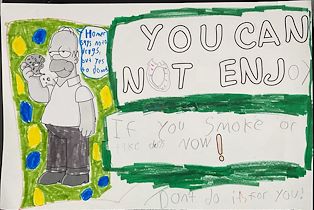 Homer
says no to
drugs,
but yes
to donut
YOU CAN
NOT ENJOY
If you smoke or
take NOW!
Dont do its for you!